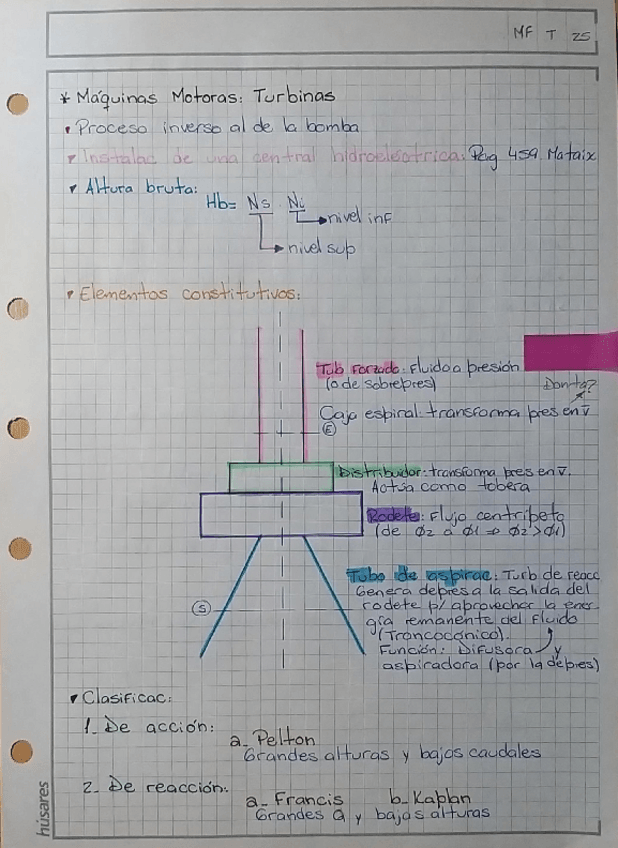 MF T 25
* Máquinas Motoras: Turbinas
Proceso inverso al de la bomba
Instalac de una central hidroeléctrica: Pag 459 Mataix
Altura bruta:
Hb= Ns - Ni
nivel inf
nivel sup
Elementos constitutivos:
Tub Forzado: Fluido a presión
(o de sobrepres)
Caja espiral: transforma pres en v̄
E
Distribuidor: transforma pres en v̄.
Actúa como tobera
Rodete: Flujo centribeto
(de Ø2 a Ø1 ⇒ Ø2>Ø1)
Tubo de aspirac: Turb de reacc
Genera depres a la salida del
S
rodete p/ aprovechar la ener
gía remanente del Fluido
(Troncocónico).
Función: Difusora y
aspiradora (por la depres)
Clasificac:
1. De acción:
a_ Pelton
Grandes alturas y bajos caudales
2_ De reacción:
a_ Francis b_ Kaplan
Grandes Q y bajas alturas
húsares